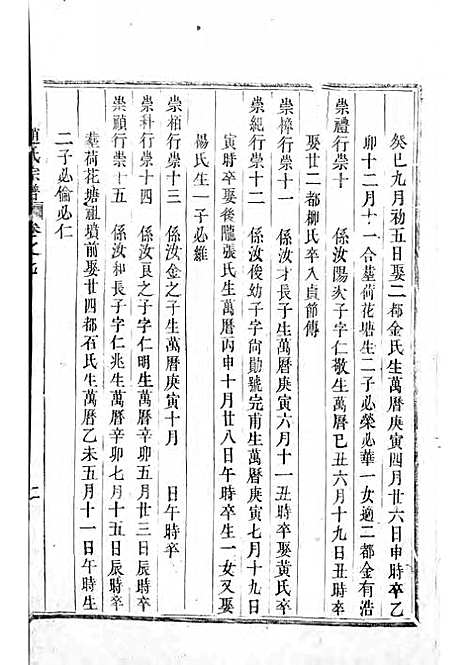 癸巳九月初五日娶二都金氏生萬曆庚寅四月廿六日申時卒乙
卯十二月十一合塟荷花塘生二子必榮必華一女適二都金有浩
崇禮行崇十 係汝陽次子字仁敬生萬曆己丑六月十九日丑時卒
娶廿二都柳氏卒入貞節傳
崇樟行崇十一 係汝才長子生萬曆庚寅六月十一丑時卒娶黃氏
崇紀行崇十二 係汝俊幼子字尚勛號完甫生萬曆庚寅七月十九日
寅時卒娶後隴張氏生萬曆丙申十月廿八日午時卒生一女又娶
楊氏生一子必維
崇柏行崇十三 係汝金之子生萬曆庚寅十月 日午時卒
崇科行崇十四 係汝良之子字仁明生萬曆辛卯五月廿三日辰時卒
崇順行崇十五 係汝和長子字仁兆生萬曆辛卯七月十五日辰時卒
塟荷花塘祖墳前娶廿四都石氏生萬曆乙未五月十一日午時生
二子必倫必仁
氏宗譜 卷之 二